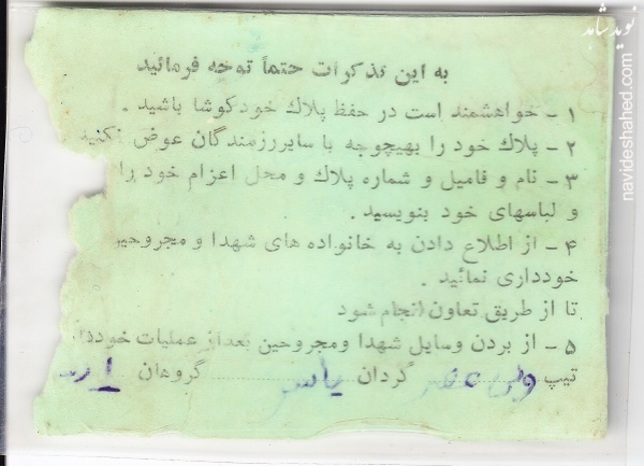 به این تذکرات حتماً توجه فرمائید
۱ - خواهشمند است در حفظ پلاك خود کوشا باشید .
۲ - پلاك خود را بهیچوجه با سایر رزمندگان عوض نکنید
۳ - نام و فامیل و شماره پلاك و محل اعزام خود را
و لباسهای خود بنویسید .
۴ - از اطلاع دادن به خانواده های شهدا و مجروحین
خودداری نمائید .
تا از طریق تعاون انجام شود
۵ - از بردن وسایل شهدا و مجروحین بعد از عملیات خوددا
تیپ ولی عصر گردان یاسر گروهان
نوید شاهد
navideshahed.com